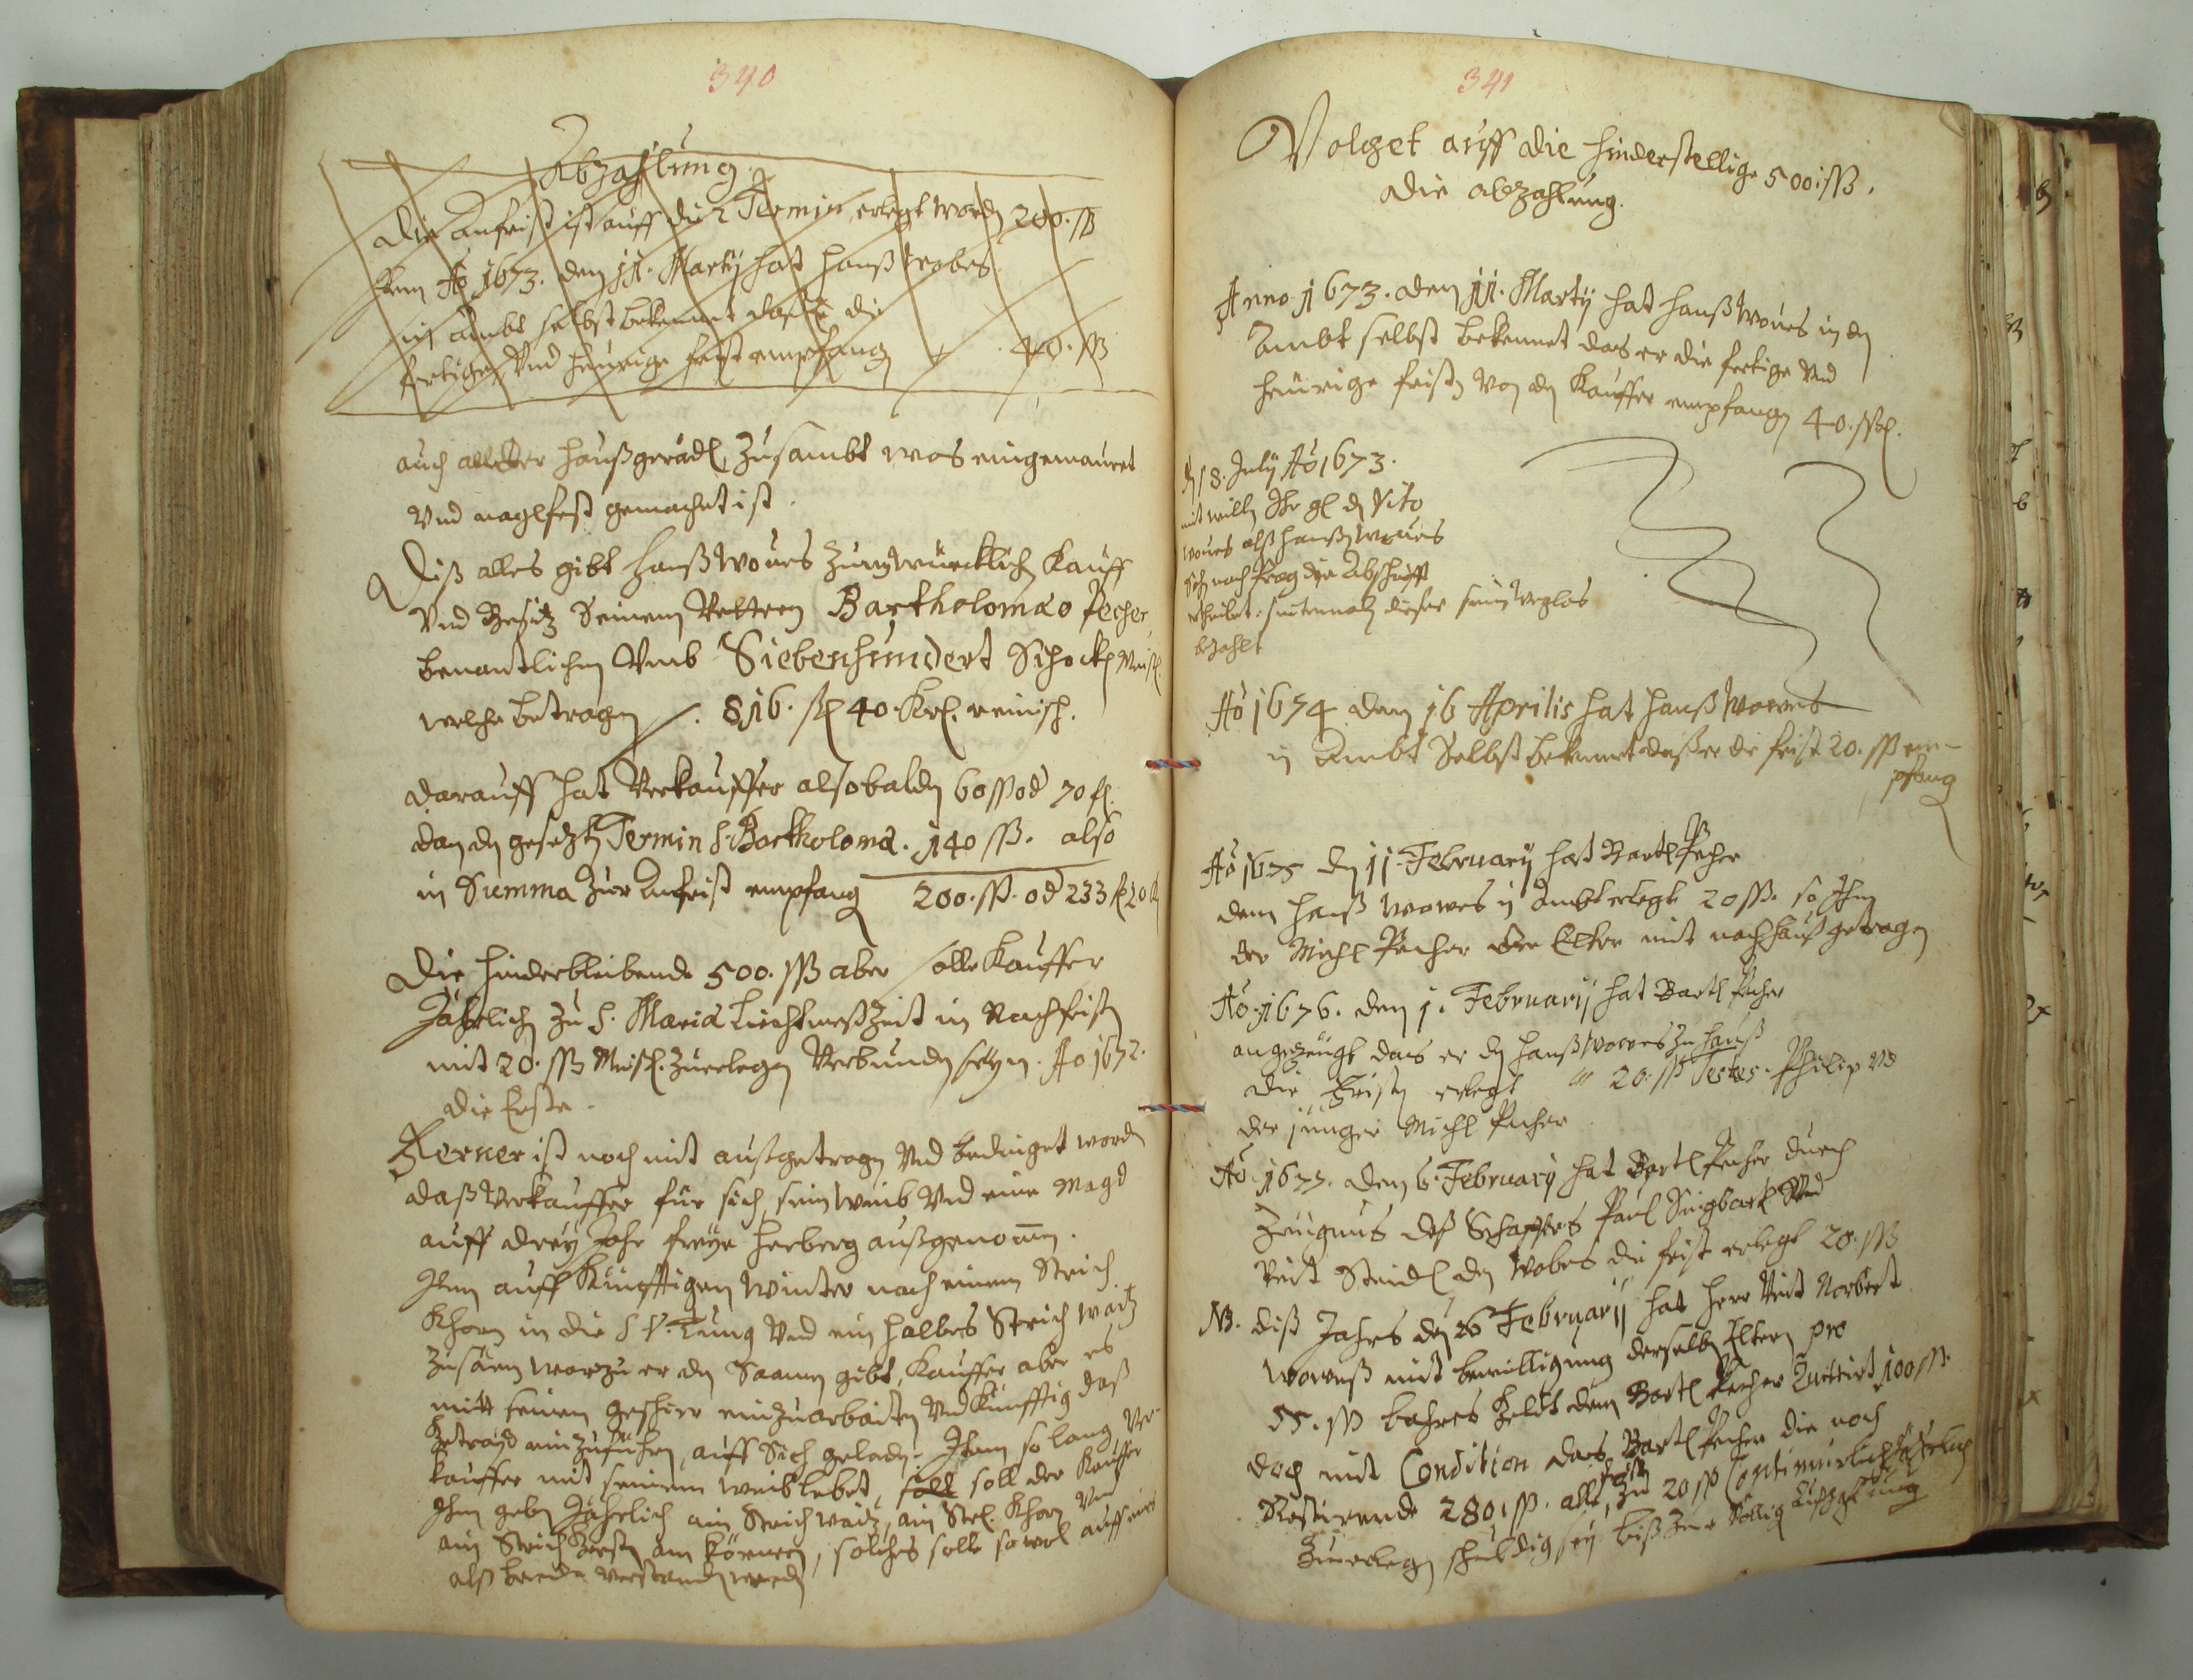 340
Abzahlung
Die Anfrist ist auff die 2 Termin erlegt worden 200. ss
Item Ao 1673. den 11. Marty hat Hanß Wobes
in Ambt selbst bekennet das er die
fertige Vnd heurige frist empfangen 40. ss
auch alleder haußgerädl, zusambt was eingemauret
Vnd naglfest gemacht ist.
Diß alles gibt Hanß Woues zum würcklichen Kauff
Vnd Besitz Seinem Vettern Bartholomæo Pecher
benantlichen Vmb Siebenhundert Schockh Meiß.
welche betragen 816. fl 40. Krl. reinisch.
Darauff hat Verkauffer alsobalden 60 ss od 70 fl.
dan den gesetzten Termin S. Bartholomæ. 140 ss. also
in Summa zur Anfrist empfangen 200. ss. od 233 fl 20 k
Die hinderbleibende 500. ss aber solle Kauffer
Jährlich zu S. Mariæ Liechtmeßzeit in Nachfristen
mit 20. ss Meiß. zuerlegen Verbunden seyn. Ao 1672.
die Erste.
Ferner ist noch mit außgetragen Vnd bedinget worden
daß Verkauffer für sich, sein Weib Vnd eine Magd
auff drey Jahr freye Herberg außgenommen.
Item auff Künfftigen Winter noch einem Strich
Khorn in die S. V. Tung Vnd ein halbes Strich Waitz
zusäen worzu er den Saamen gibt, Kauffer aber es
mitt seinem geschirr einzuarbaiten Vnd Künfftig daß
Getrayd einzuführen, auff Sich geladen. Item so lang Ver-
kauffer mit seinem Weib lebet, soll soll der Kauffer
Ihm geben Jährlich ain Strich Waitz, ain Strl. Khorn Vnd
ain Strich Gersten am Körnern, solches solle sowol auff eines
alß beede verstanden werden
341
Volget auff die hinderstellige 500 ss.
die abzahlung.
Anno 1673. den 11. Marty hat Hanß Woues in den
Ambt selbst bekennet das er die fertige Vnd
heurige fristen Von den Kauffer empfangen 40. ss.
den 18. July Ao 1673.
mit willen Ihr gl. den Vito
Woues alß Hanßen Woues
Sohn nach Prag die Abschrifft
ertheilet: seitemaln dieser sein
bezahlt
Ao 1674 den 16 Aprilis hat Hanß Wowes
in Ambt Selbst bekennet daß er die frist 20. ss em-
pfangen
Ao 1675 den 11. February hat Bartl Pecher
dem Hanß Wowes in Ambt erlegt 20 ss. so Ihm
der Michl Pecher der Elter mit nach hauß getragen
Ao. 1676. den 1. February hat Bartl Pecher
angezeugt das er den Hanß Wowes zu hauß
die Fristen erlegt 20. ss Testes. Philip Vnd
der jünger Michl Pecher
Ao. 1677. den 6. February hat Bartl Pecher durch
Zeugnus deß Schaffers Paul Vnd
Veit Seidl den Wobes die frist erlegt 20. ss
NB. diß Jahrs den 26 February hat Herr Veit Norbert
Woweß mit bewilligung derselben Eltern pro
55. ss bahres Geldt dem Bartl Pecher Quittirt 100 ss.
doch mit Condition das Bartl Pecher die noch
Restirende 280. ss. alle fristen zu 20 ss Continuirlich
zuerlegen schuldig sey biß zur Völlig